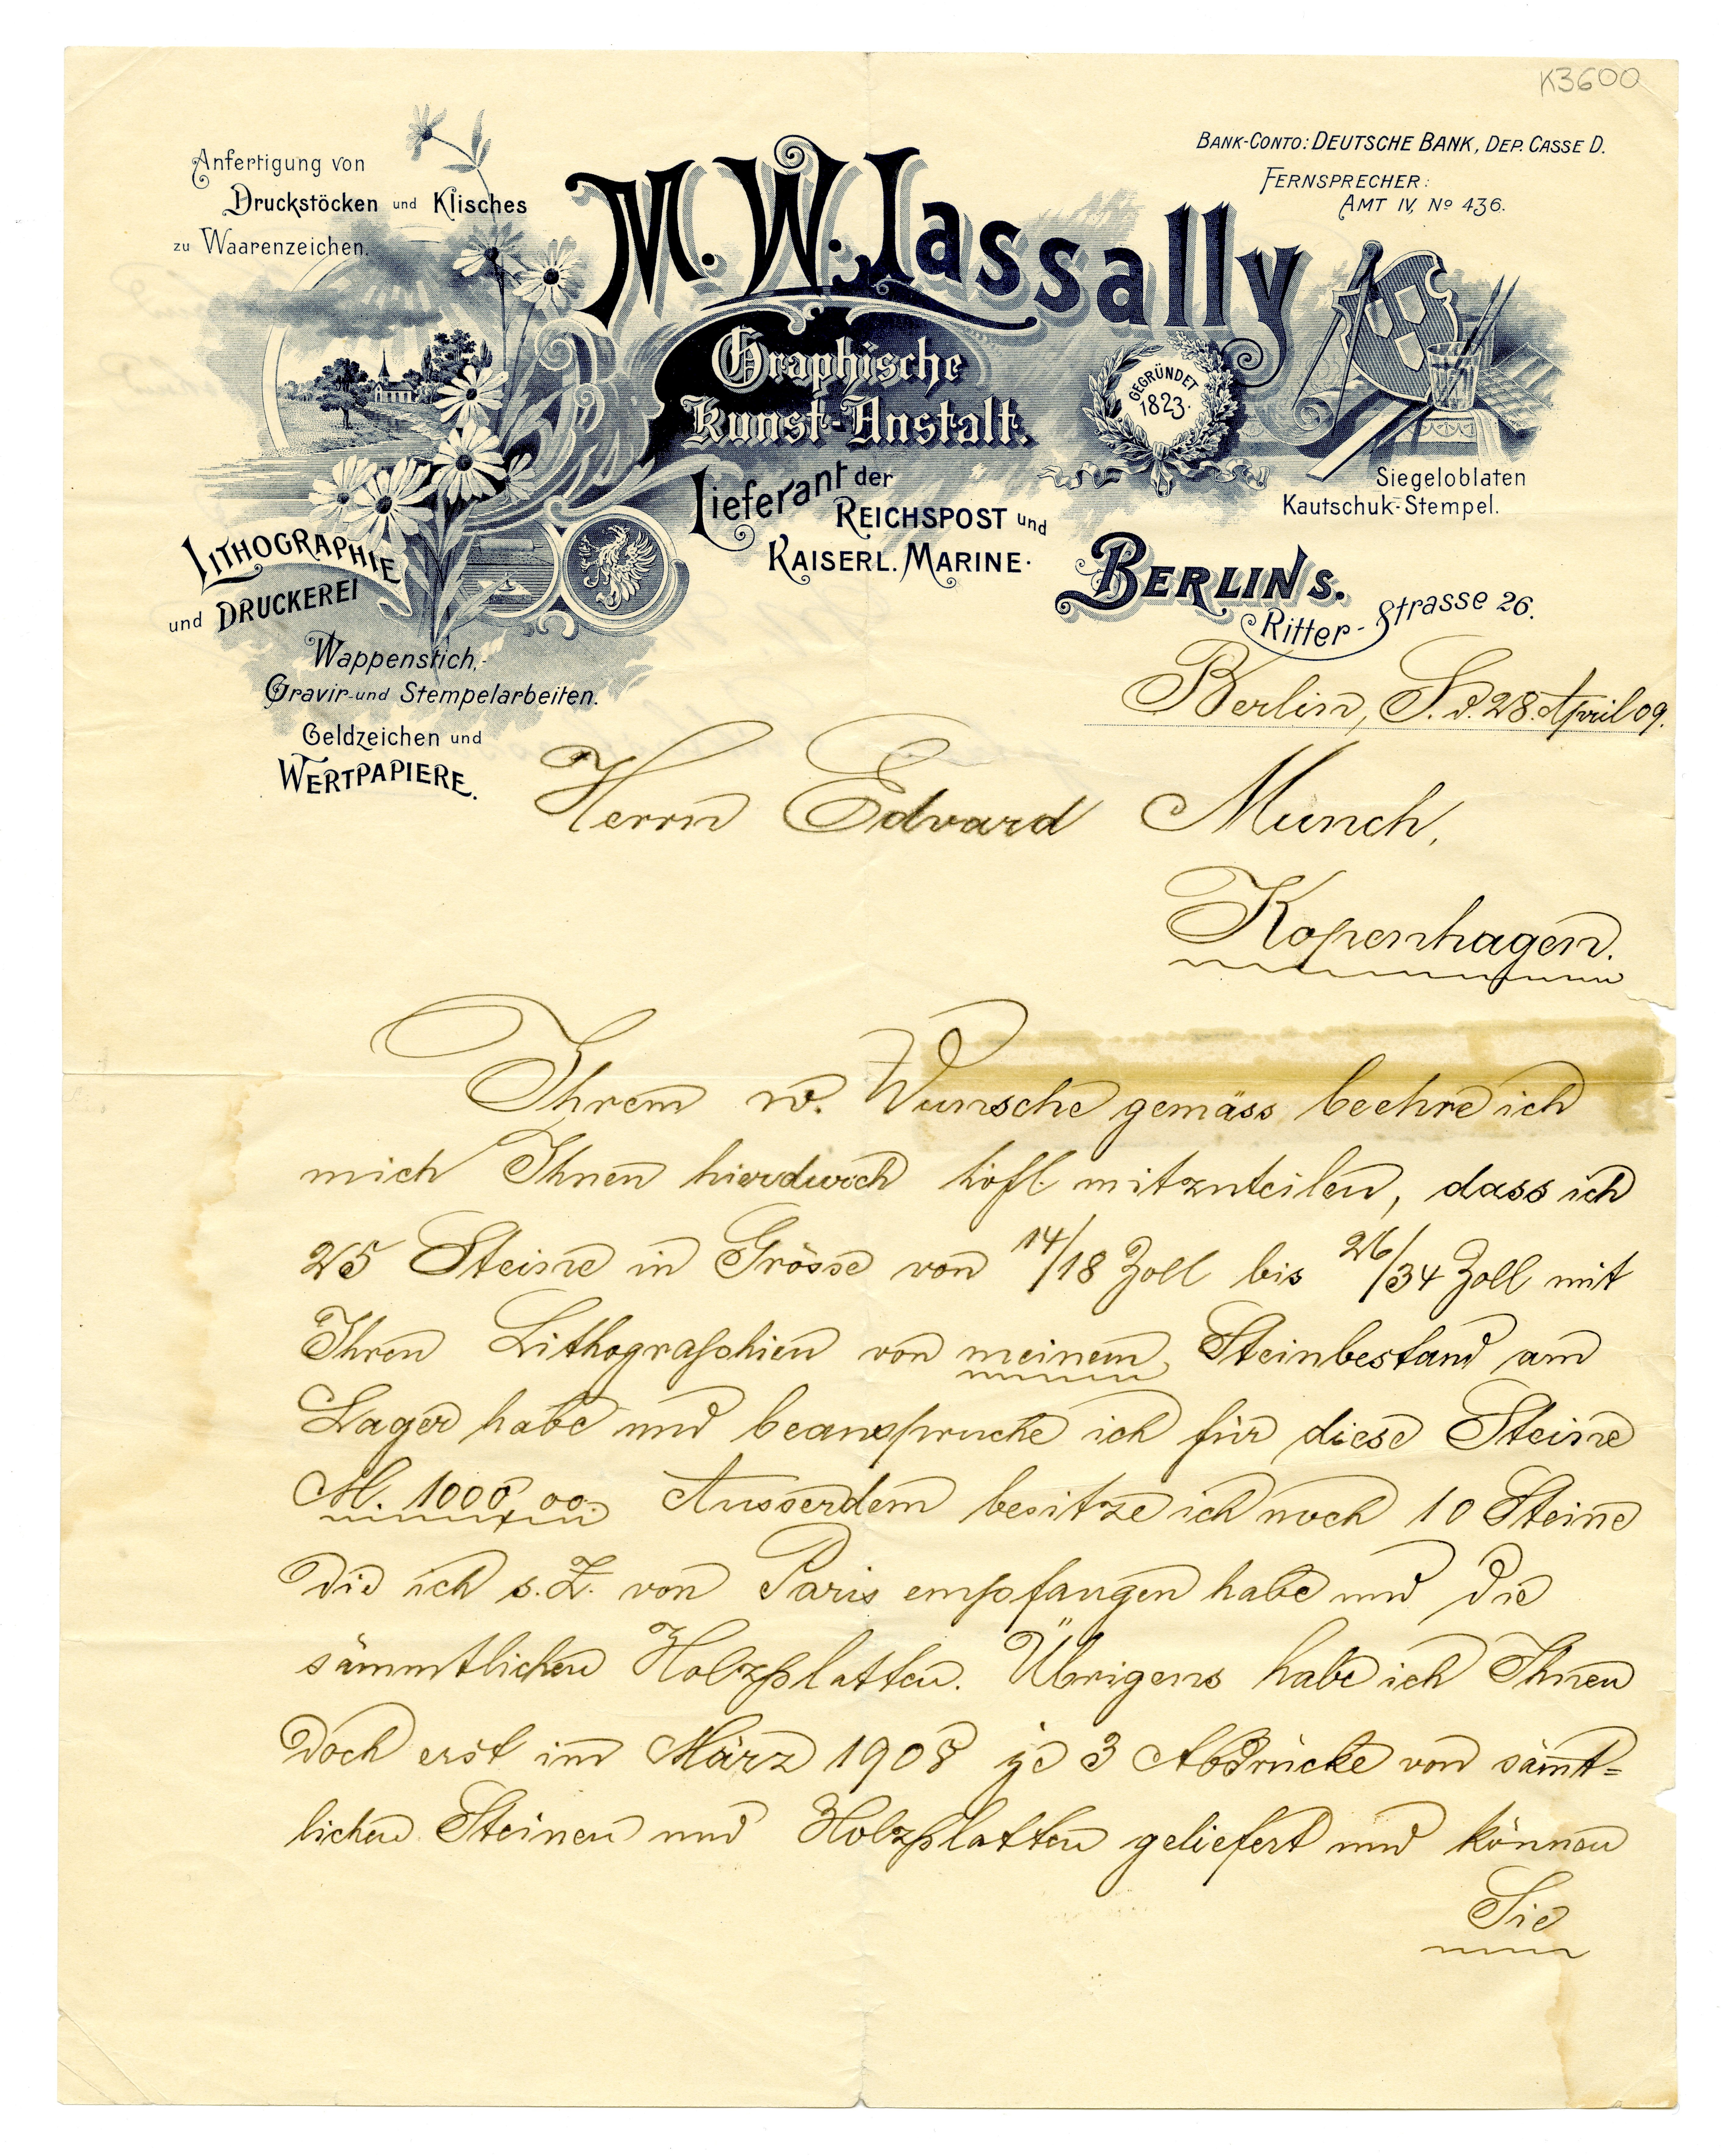 K3600
Anfertigung von
Druckstöcken und Klisches
zu Waarenzeichen.
BANK-CONTO: DEUTSCHE BANK, DEP. CASSE D.
FERNSPRECHER:
AMT IV, No 436.
M. W. Lassally
Graphische
Kunst-Anstalt.
GEGRÜNDET
1823.
Lieferant der
REICHSPOST und
KAISERL. MARINE.
Siegeloblaten
Kautschuk-Stempel.
LITHOGRAPHIE
und DRUCKEREI
Wappenstich,-
Gravir- und Stempelarbeiten.
Geldzeichen und
WERTPAPIERE.
BERLIN S.
Ritter-Strasse 26.
Berlin, S. d. 28. April 09.
Herrn Edvard Munch,
Kopenhagen.
Ihrem w. Wunsche gemäss beehre ich
mich Ihnen hierdurch höfl. mitzuteilen, dass ich
25 Steine in Grösse von 14/18 Zoll bis 26/34 Zoll mit
Ihren Lithographien von meinem Steinbestand am
Lager habe und beanspruche ich für diese Steine
M. 1000,00. Ausserdem besitze ich noch 10 Steine
die ich s. Z. von Paris empfangen habe und die
sämmtlichen Holzplatten. Übrigens habe ich Ihnen
doch erst im März 1908 je 3 Abdrücke von sämt=
lichen Steinen und Holzplatten geliefert und können
Sie